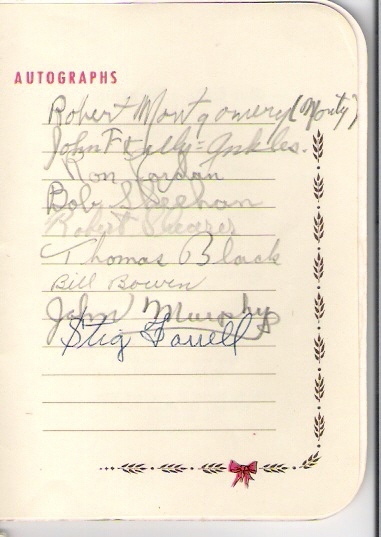 AUTOGRAPHS
Robert Montgomery (Monty)
John F Kelly = Ankles.
Ron Jordan
Bob Sheehan
Robert Shearer
Thomas Black
Bill Bowen
John Murphy
Stig Farrell